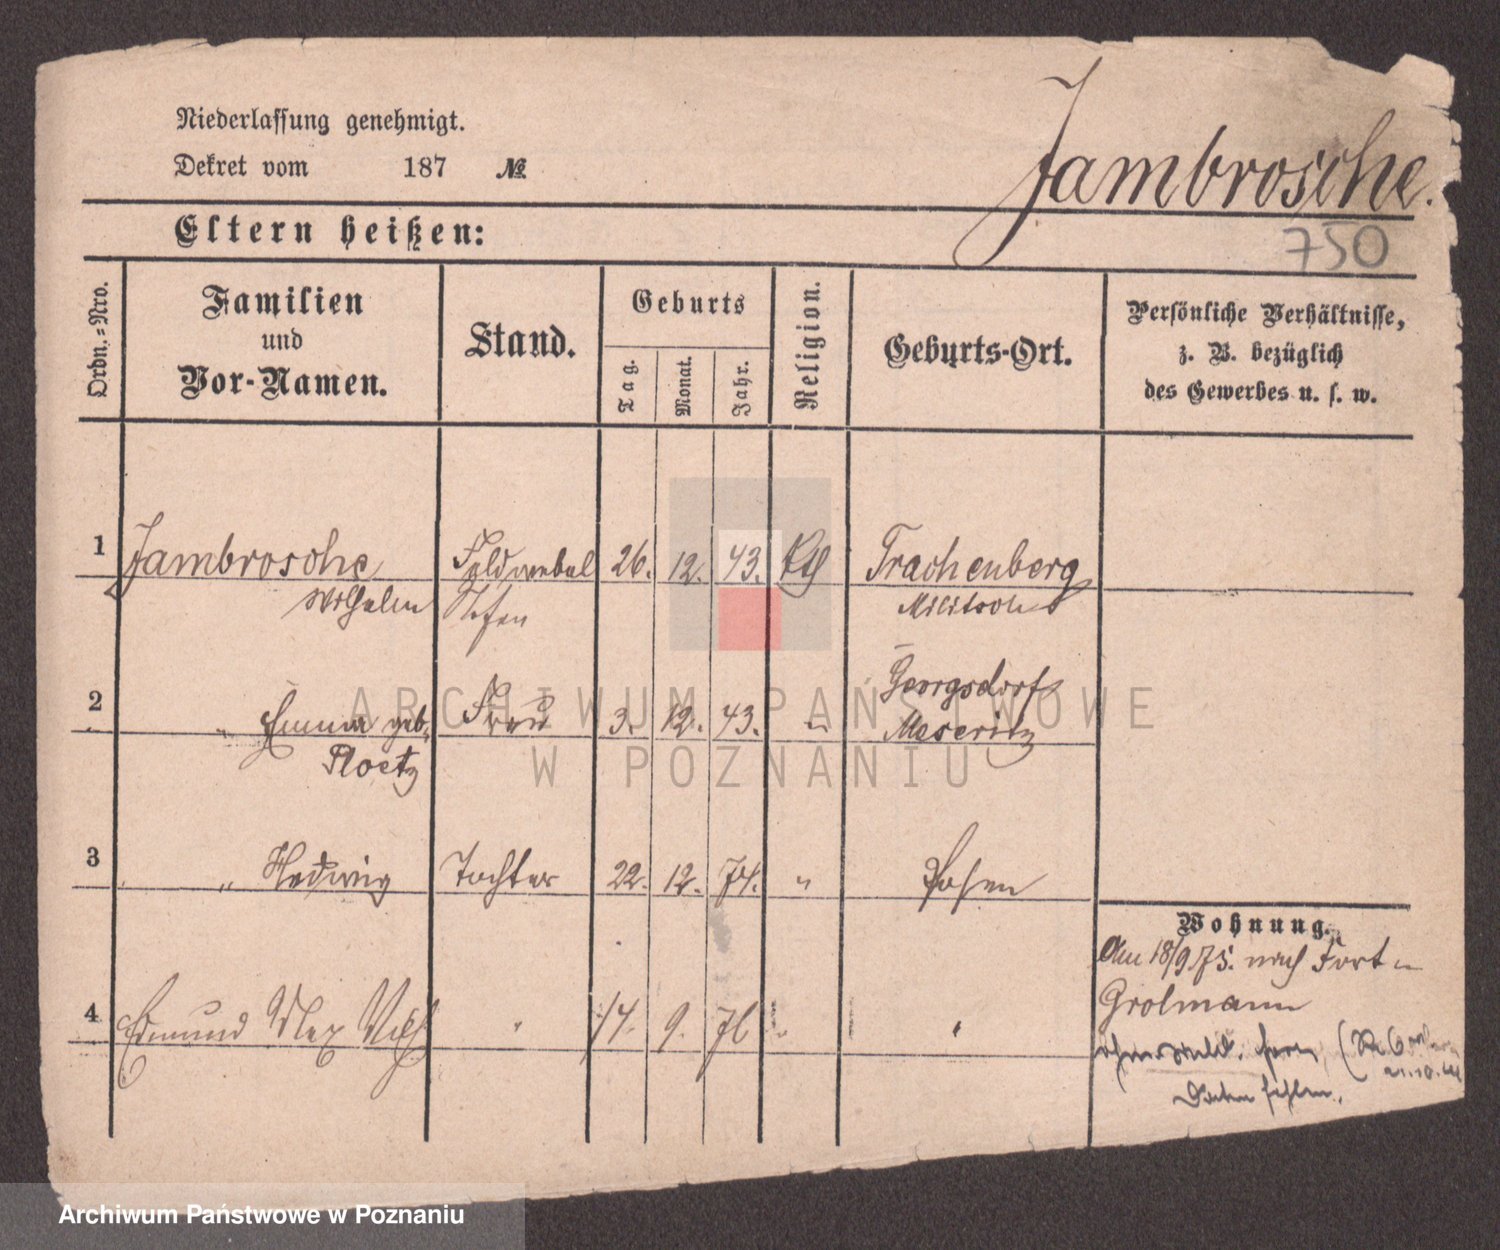 Niederlassung genehmigt.
Dekret vom 187 №
Jambrosche.
Eltern heißen:
750
Ordn.=Nro.
Familien
und
Vor-Namen.
Stand.
Geburts
Tag.
Monat.
Jahr.
Religion.
Geburts-Ort.
Persönliche Verhältnisse,
z. B. bezüglich
des Gewerbes u. s. w.
1 Jambrosche Feldwebel 26. 12. 43. Trachenberg
Wilhelm Militsch
2 " Emma geb. Frau 3. 12. 43. " Georgsdorf
Ploetz Meseritz
3 " Hedwig Tochter 22. 12. 74. " Posen
4 Edmund Max " 14. 9. 76 " "
Wohnung.
Am 18/9 75. nach Fort
Grolmann
fehlen.
ARCHIWUM PAŃSTWOWE
W POZNANIU
Archiwum Państwowe w Poznaniu